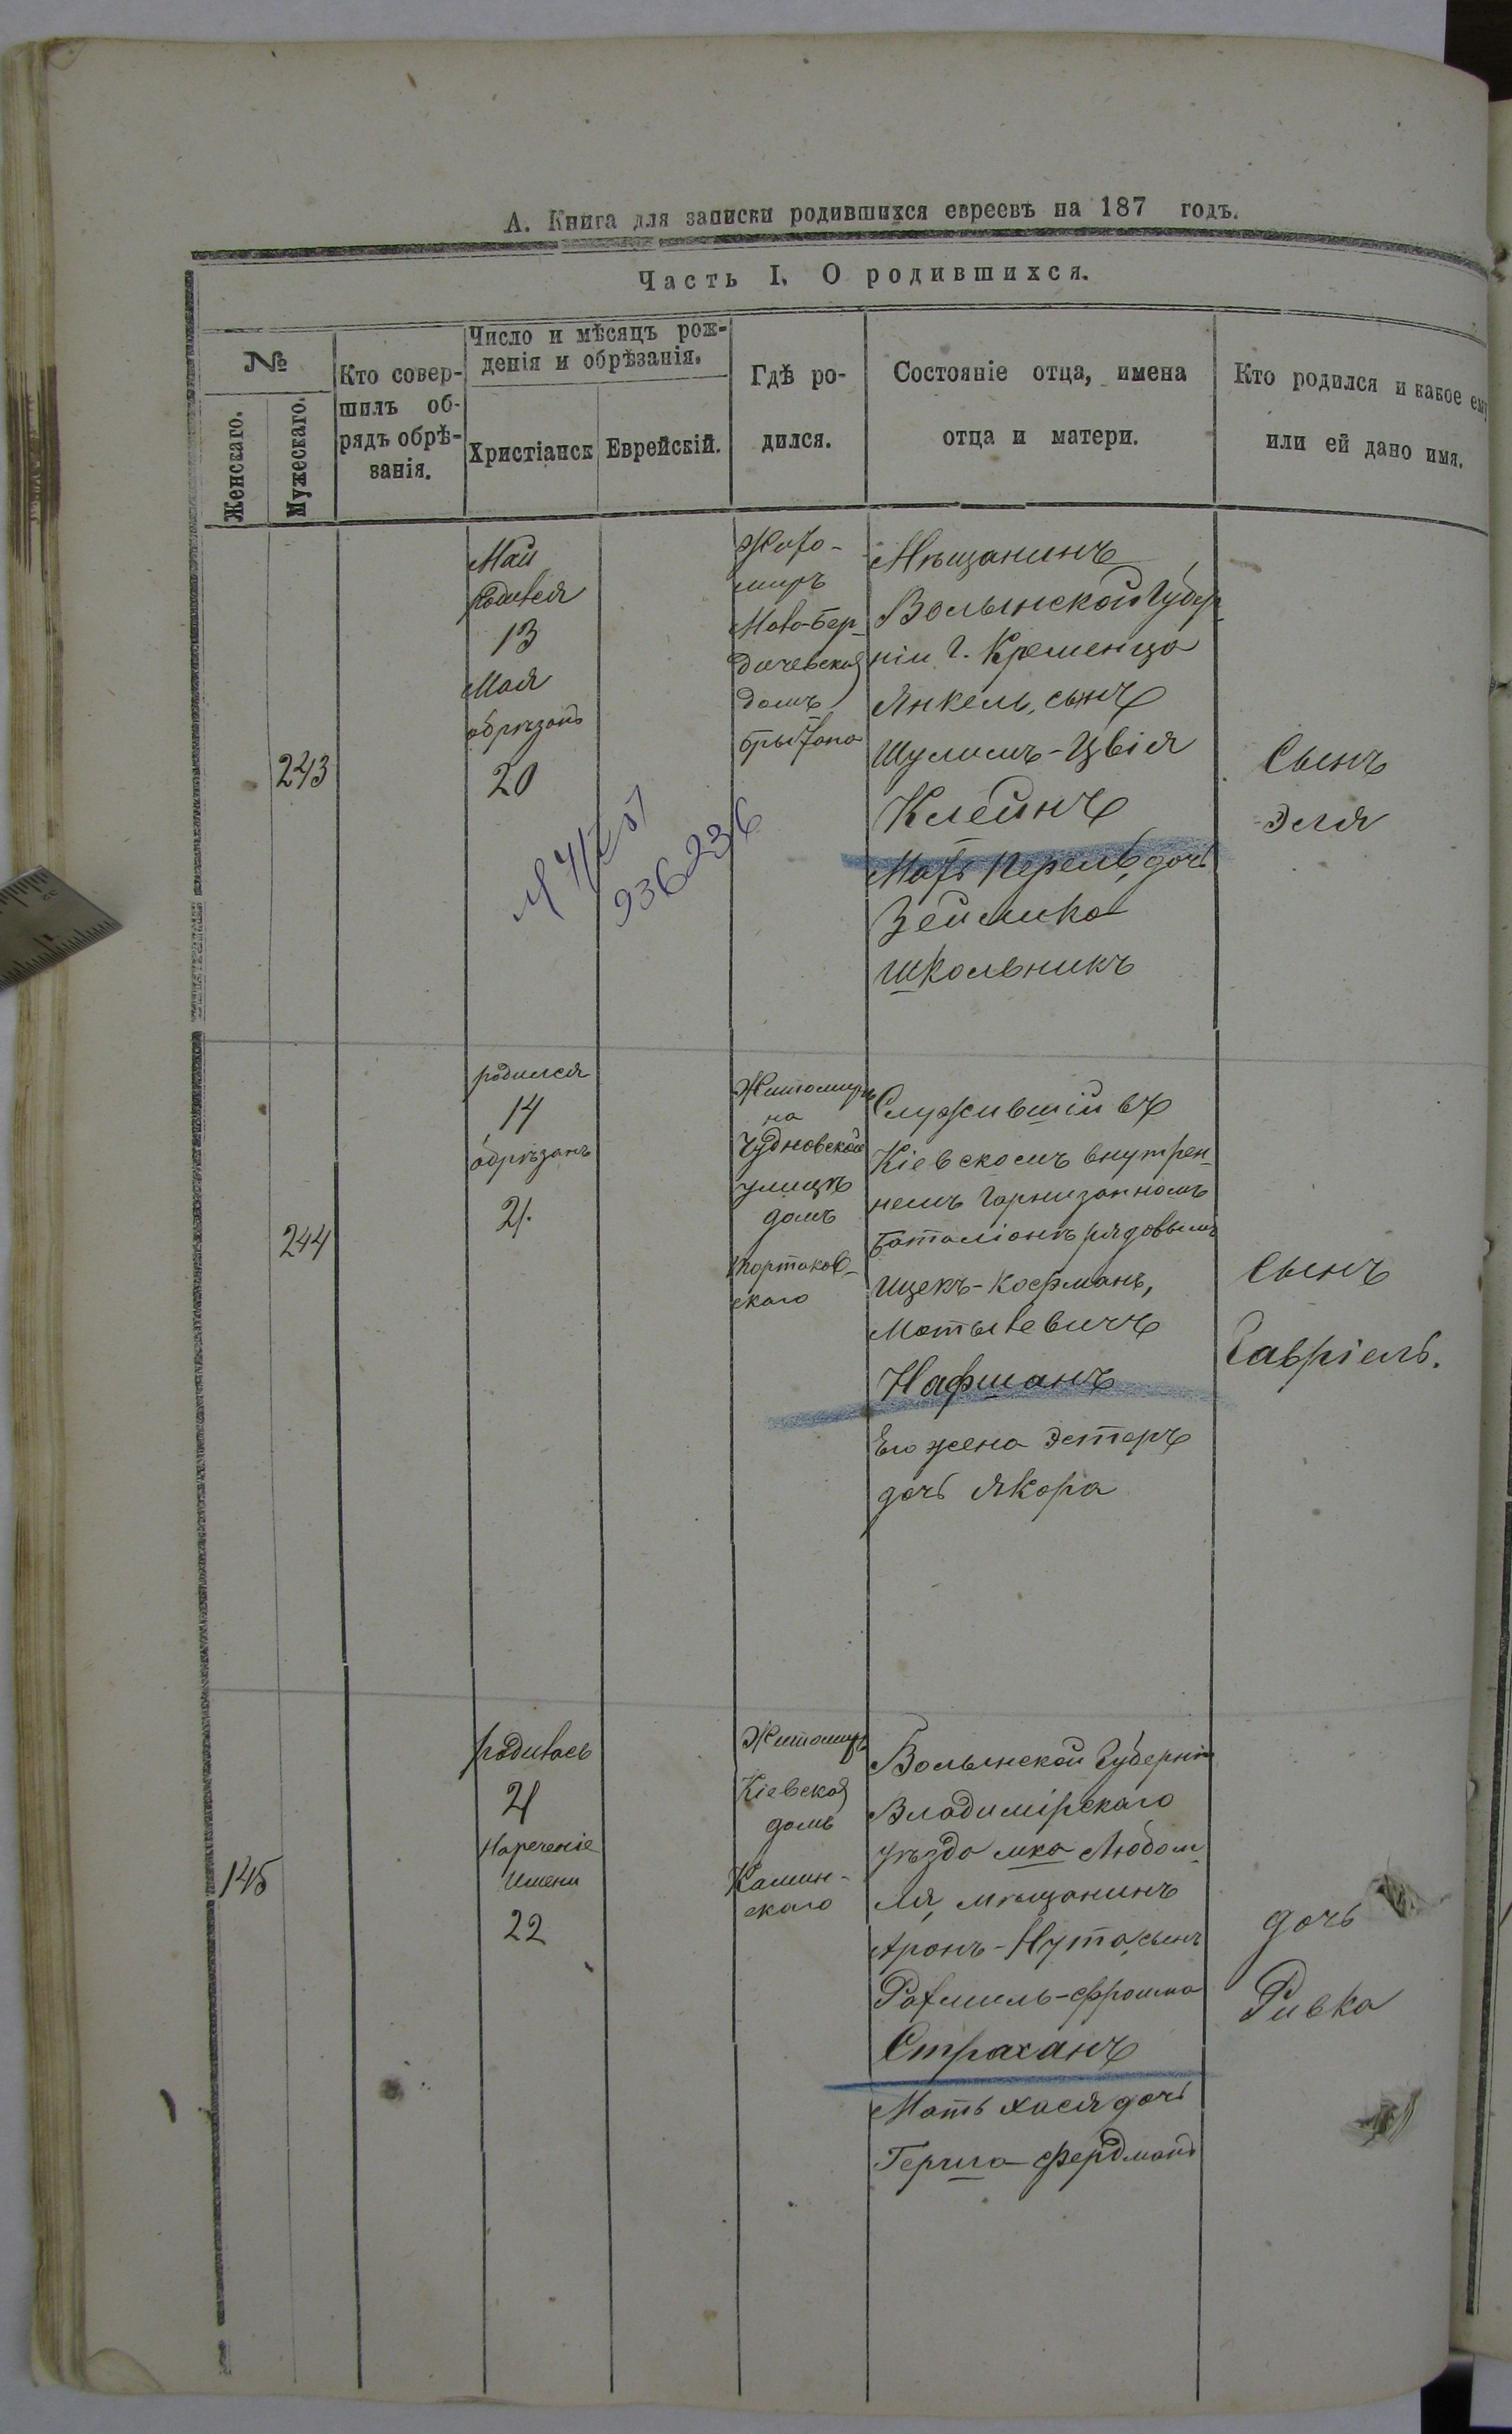 А. Книга для записки родившихся евреевъ на 187 годъ.
Часть I. О родившихся.
№
Женскаго.
Мужескаго.
Кто совер-
шилъ об-
рядъ обрѣ-
занія.
Число и мѣсяцъ рож-
денія и обрѣзанія.
Христіанск
Еврейскій.
Гдѣ ро-
дился.
Состояніе отца, имена
отца и матери.
Кто родился и какое ему
или ей дано имя.
243
Май
родився
13
Мая
обрѣзанъ
20
936236
Жито-
миръ
Ново-Бер-
дичевская
домъ
Мѣщанинъ
Волынской Губер-
ніи г. Кременца
Янкель, сынъ
Шулимъ-Цвія
Клейнъ
Мать Перель, дочь
Зейлика
Школьникъ
Сынъ
Эля
244
родился
14
обрѣзанъ
21.
Житомиръ
на
Чудновской
улицѣ
домъ
Портаков-
скаго
Служившій въ
Кіевскомъ внутрен-
немъ гарнизонномъ
баталіонѣ рядовымъ
Ицекъ-Кофманъ,
Мотылевичъ
Нафманъ
Его жена Эстеръ
дочь Якора
Сынъ
Гавріель.
145
родилась
21
Нареченіе
имени
22
Житомиръ
Кіевская
домъ
Камин-
скаго
Волынской Губерніи
Владимірскаго
уѣзда мка Любом-
ля, мѣщанинъ
Аронъ-Нута, сынъ
Рахмиль-Фроима
Страханъ
Мать Хася дочь
Герша Фердманъ
дочь
Ривка